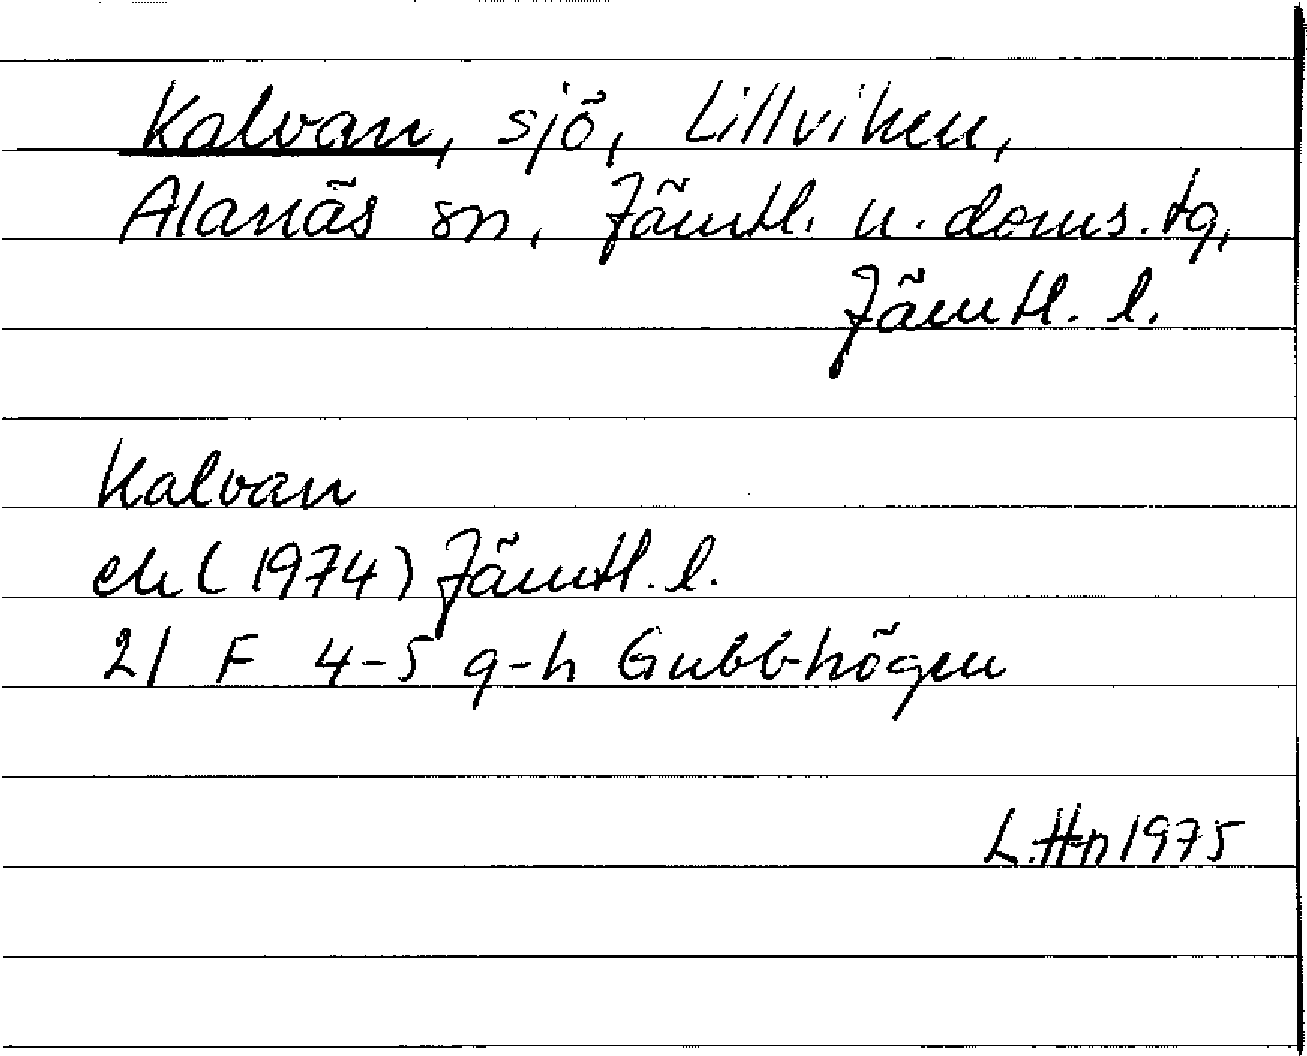 Kalvan, sjö, Lillviken,
Alanäs sn, Jämtl. n. doms. tg,
Jämtl. l.
Kalvan
ek (1974) Jämtl. l.
21 F 4-5 g-h Gubbhögen
L. Hn 1975